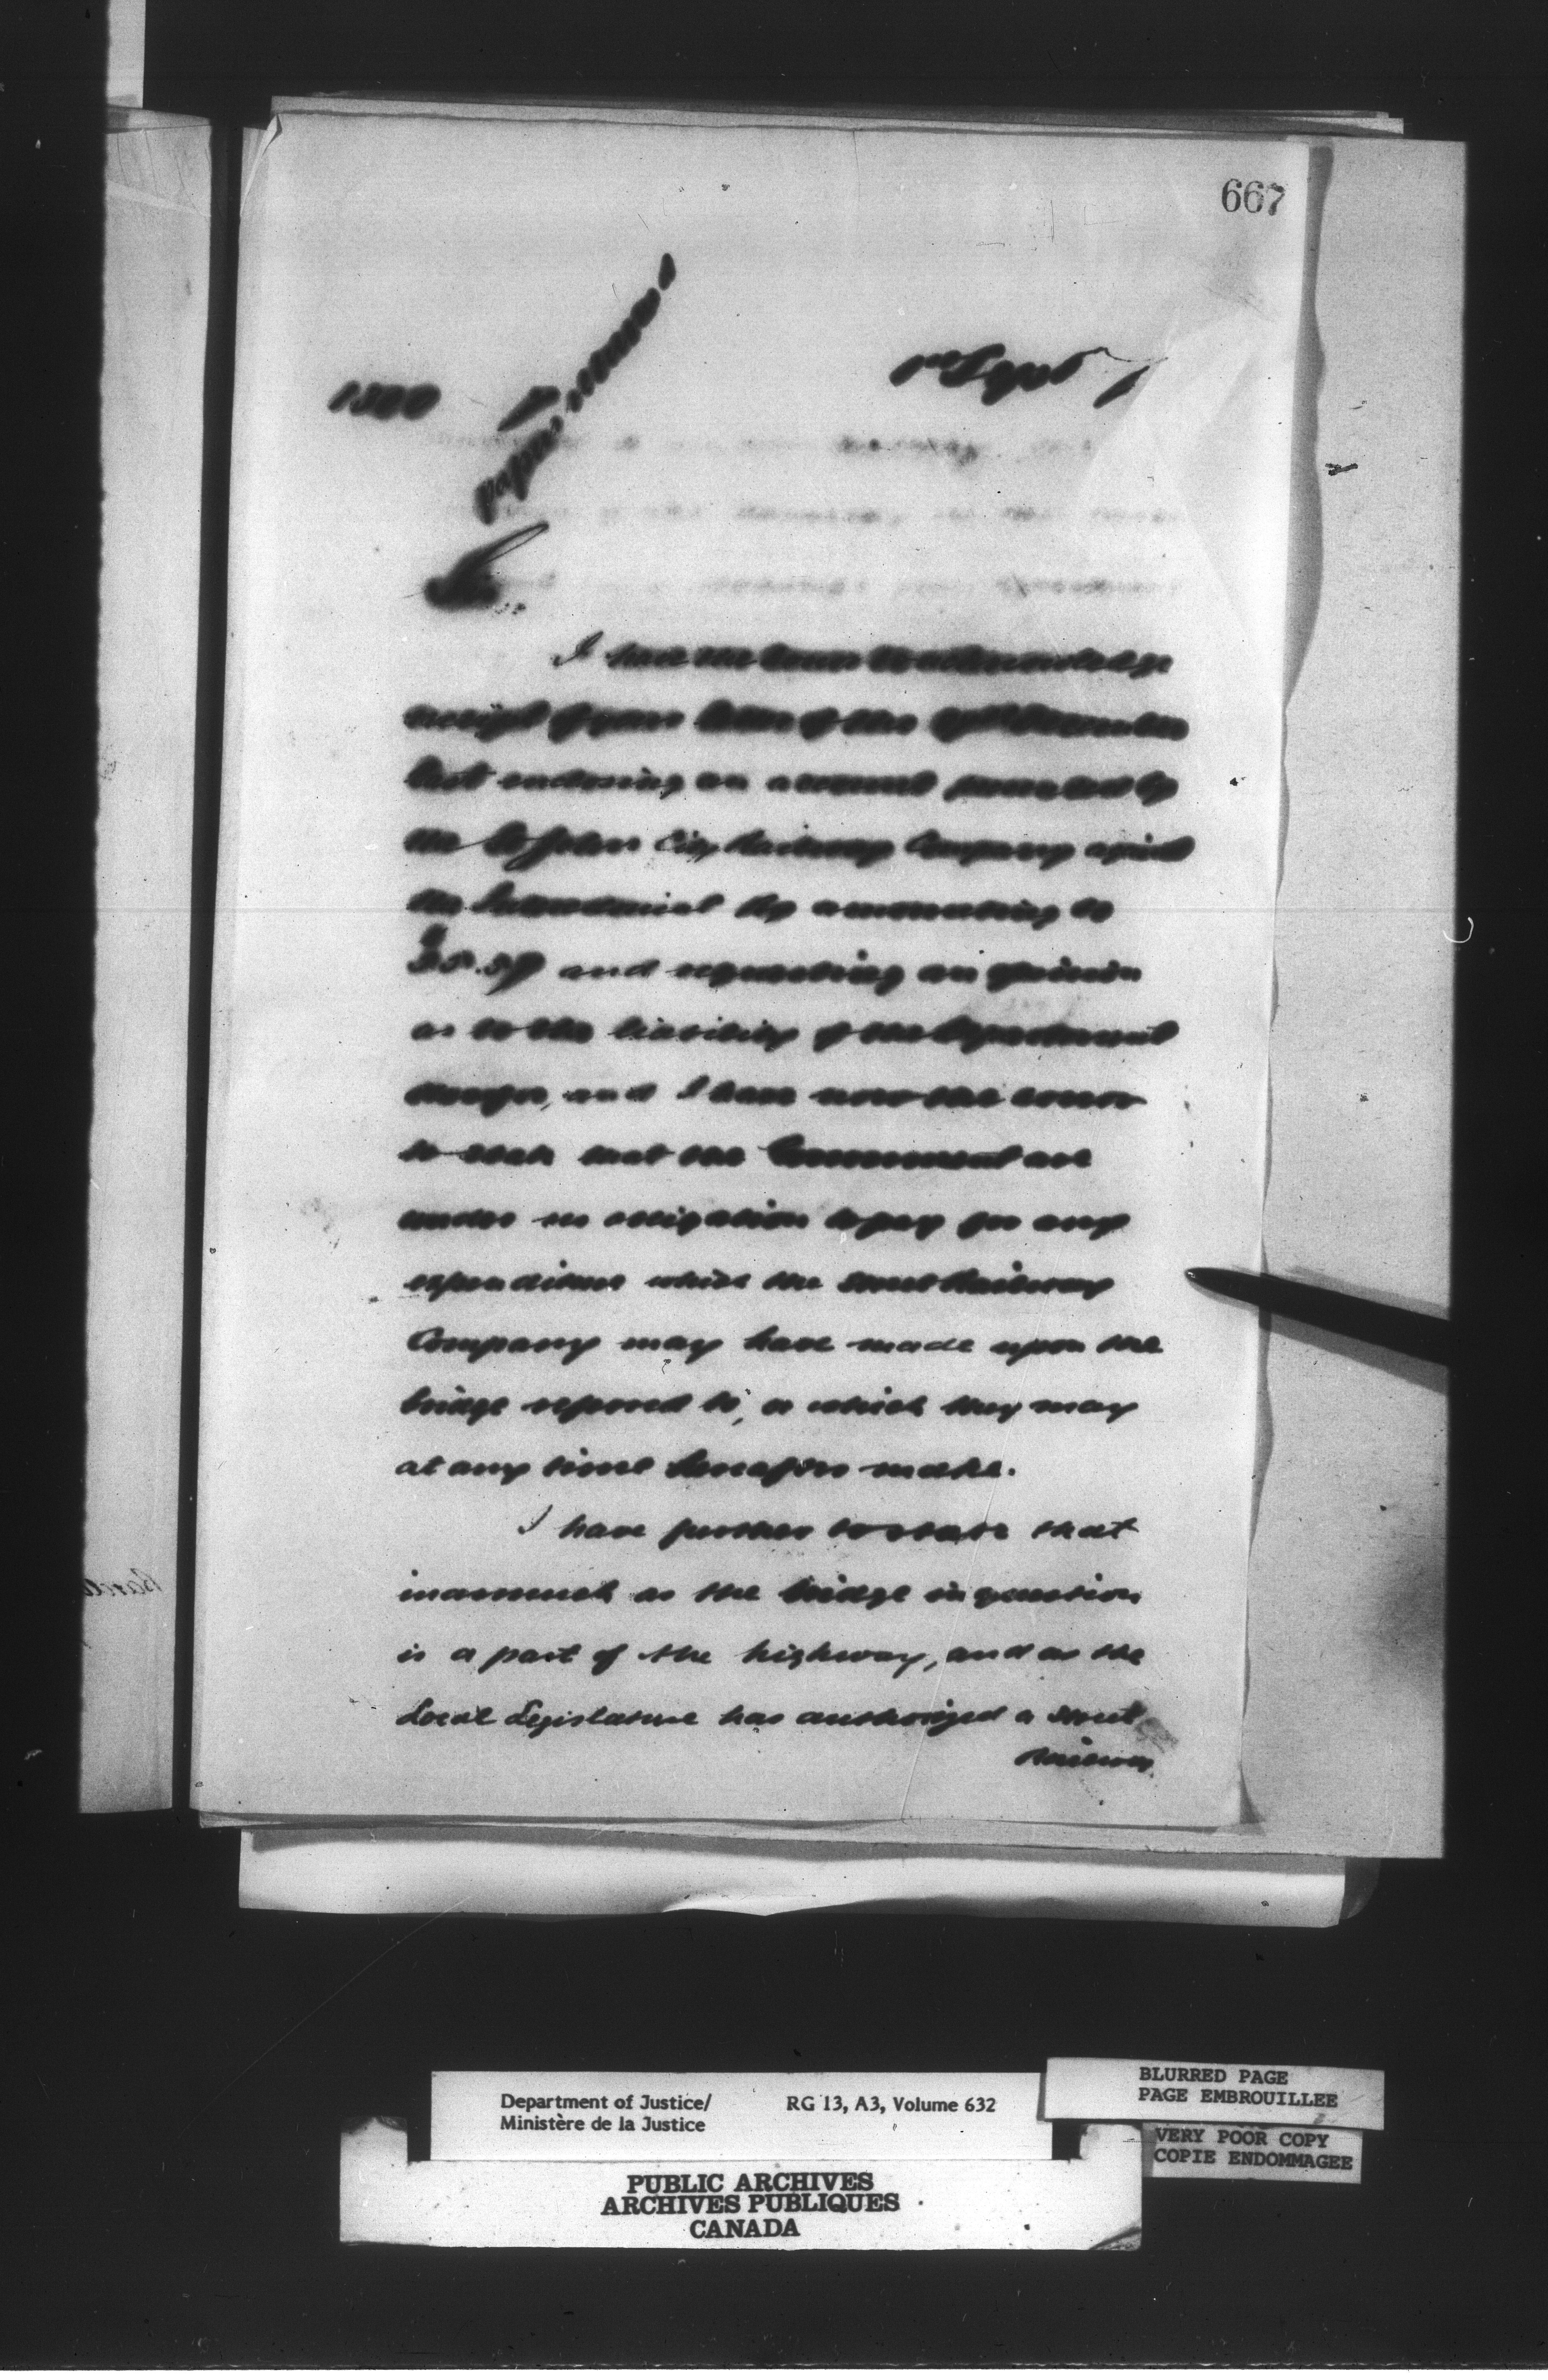 667
Sir,
I have the honor to acknowledge
receipt of your letter of the December
last enclosing an account presented by
the St John City Railway Company against
the Intercolonial Ry amounting to
and requesting an opinion
as to the liability of the Department
therefor, and I have now the honor
to state that the Government are
under no obligation to pay for any
expenditure which the Street Railway
Company may have made upon the
bridge referred to, or which they may
at any time hereafter make.
I have further to state that
inasmuch as the bridge in question
is a part of the highway, and as the
Local Legislature has authorized a Street
Railway
Department of Justice/ RG 13, A3, Volume 632
Ministère de la Justice
BLURRED PAGE
PAGE EMBROUILLEE
VERY POOR COPY
COPIE ENDOMMAGEE
PUBLIC ARCHIVES
ARCHIVES PUBLIQUES
CANADA